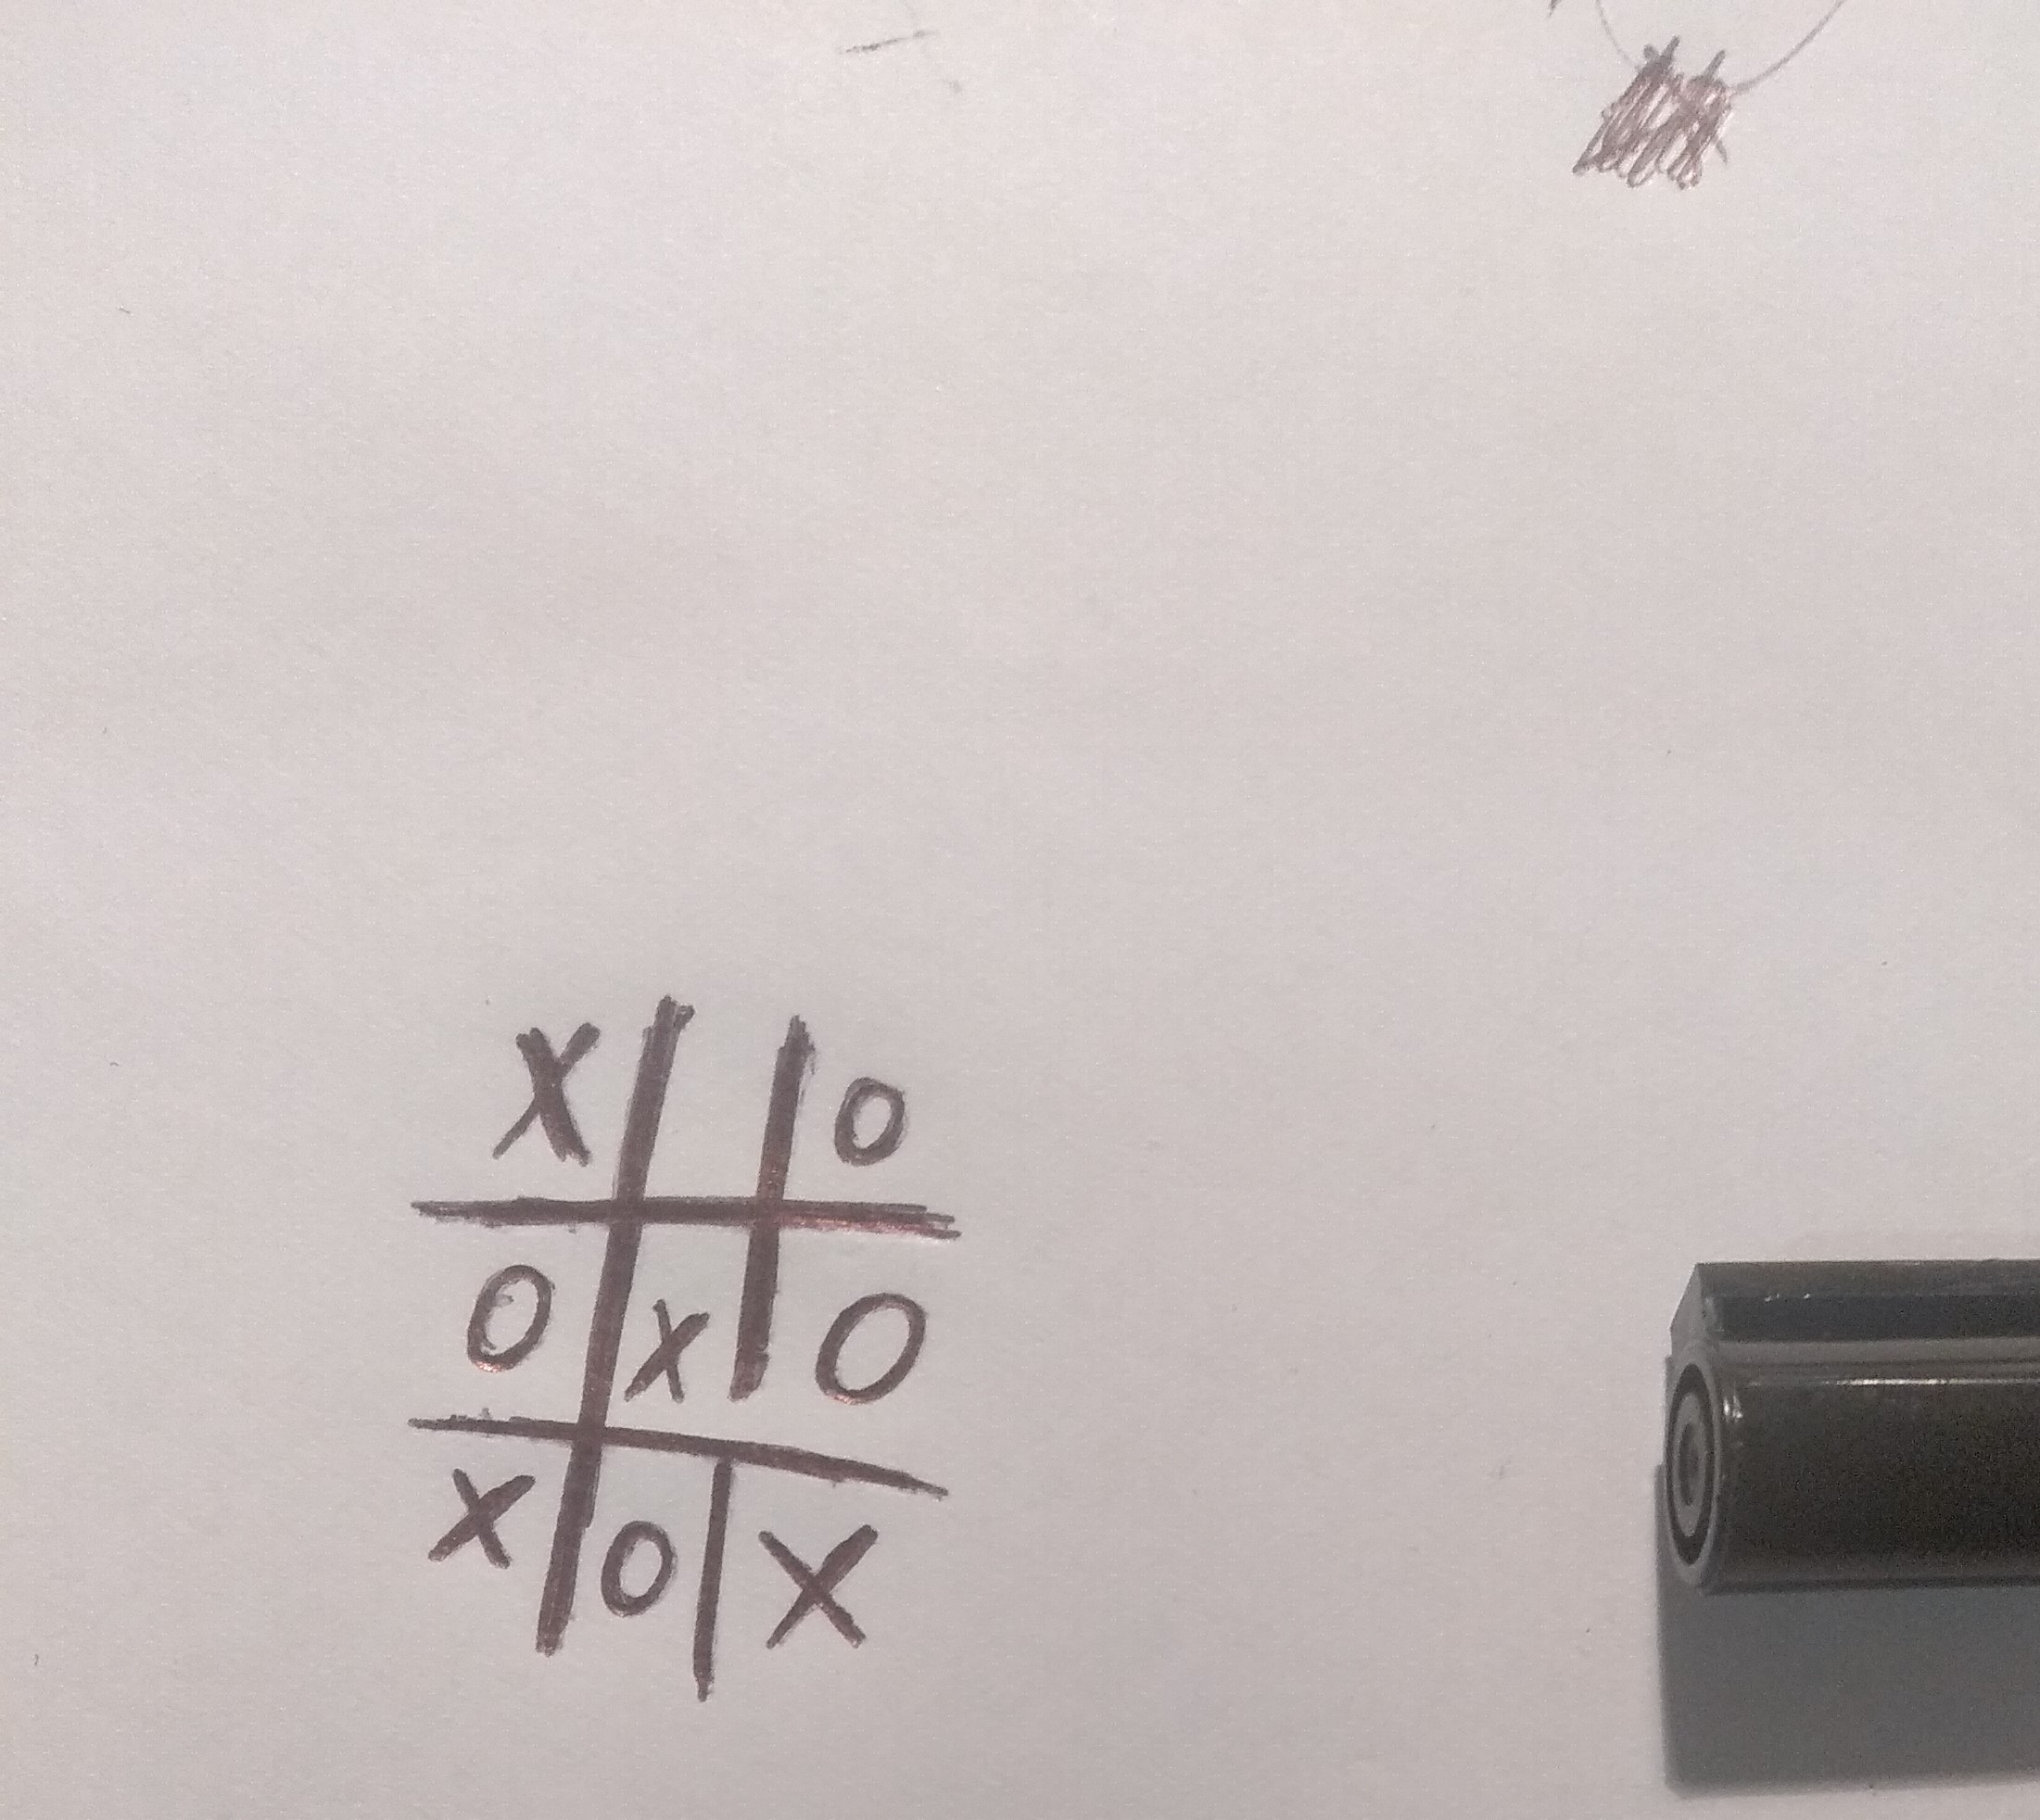 X O
O X O
X O X